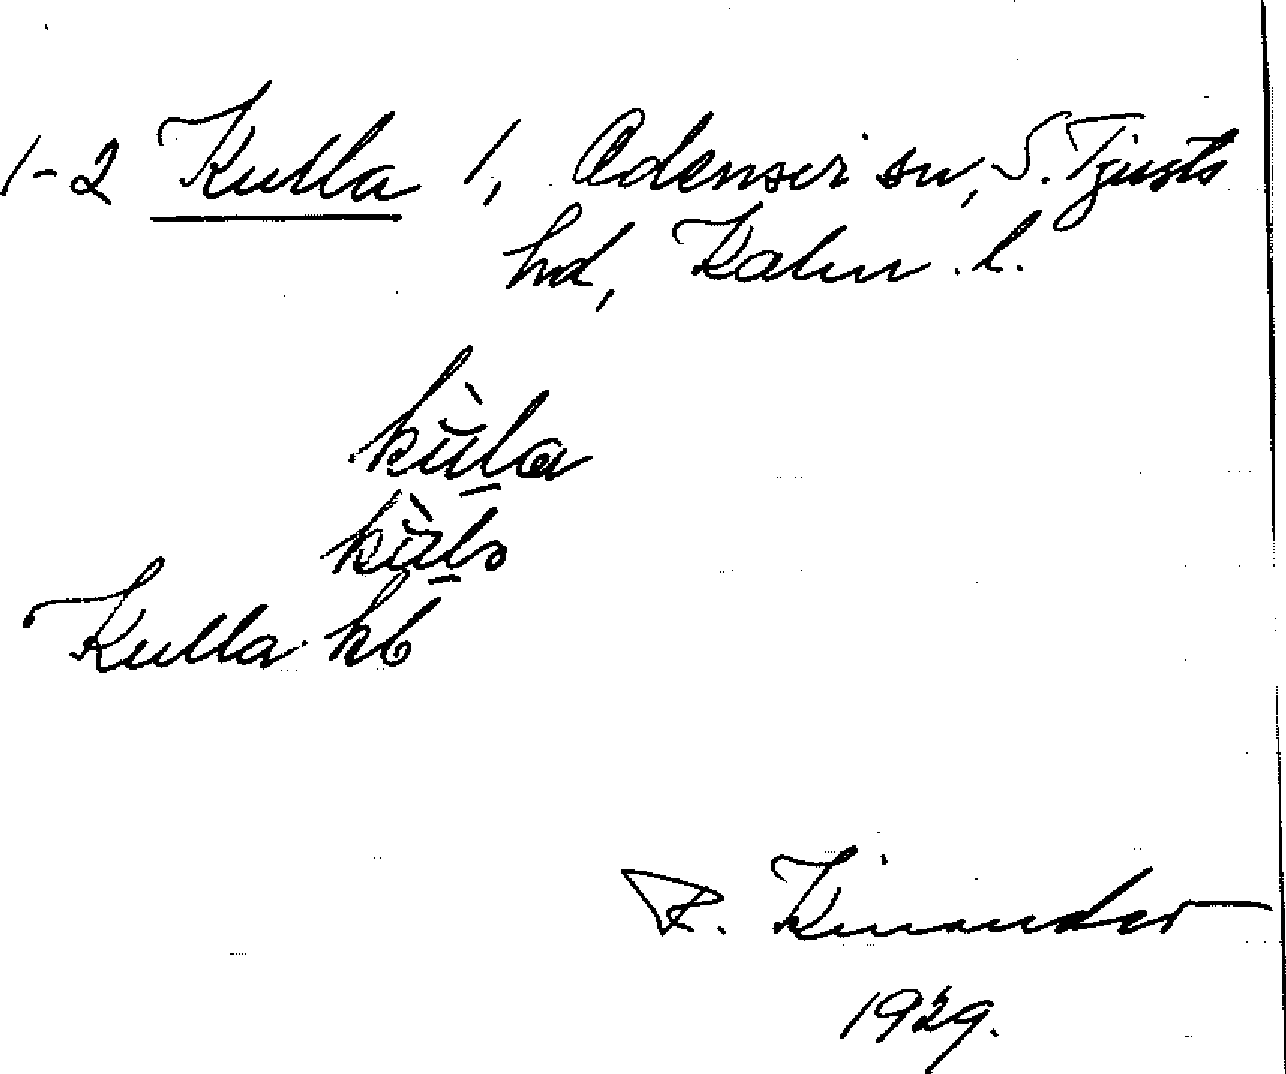 1-2 Kulla 1, Odensvi sn, S. Tjusts
hd, Kalm. l.
Kulla kb
R. Kinander
1929.